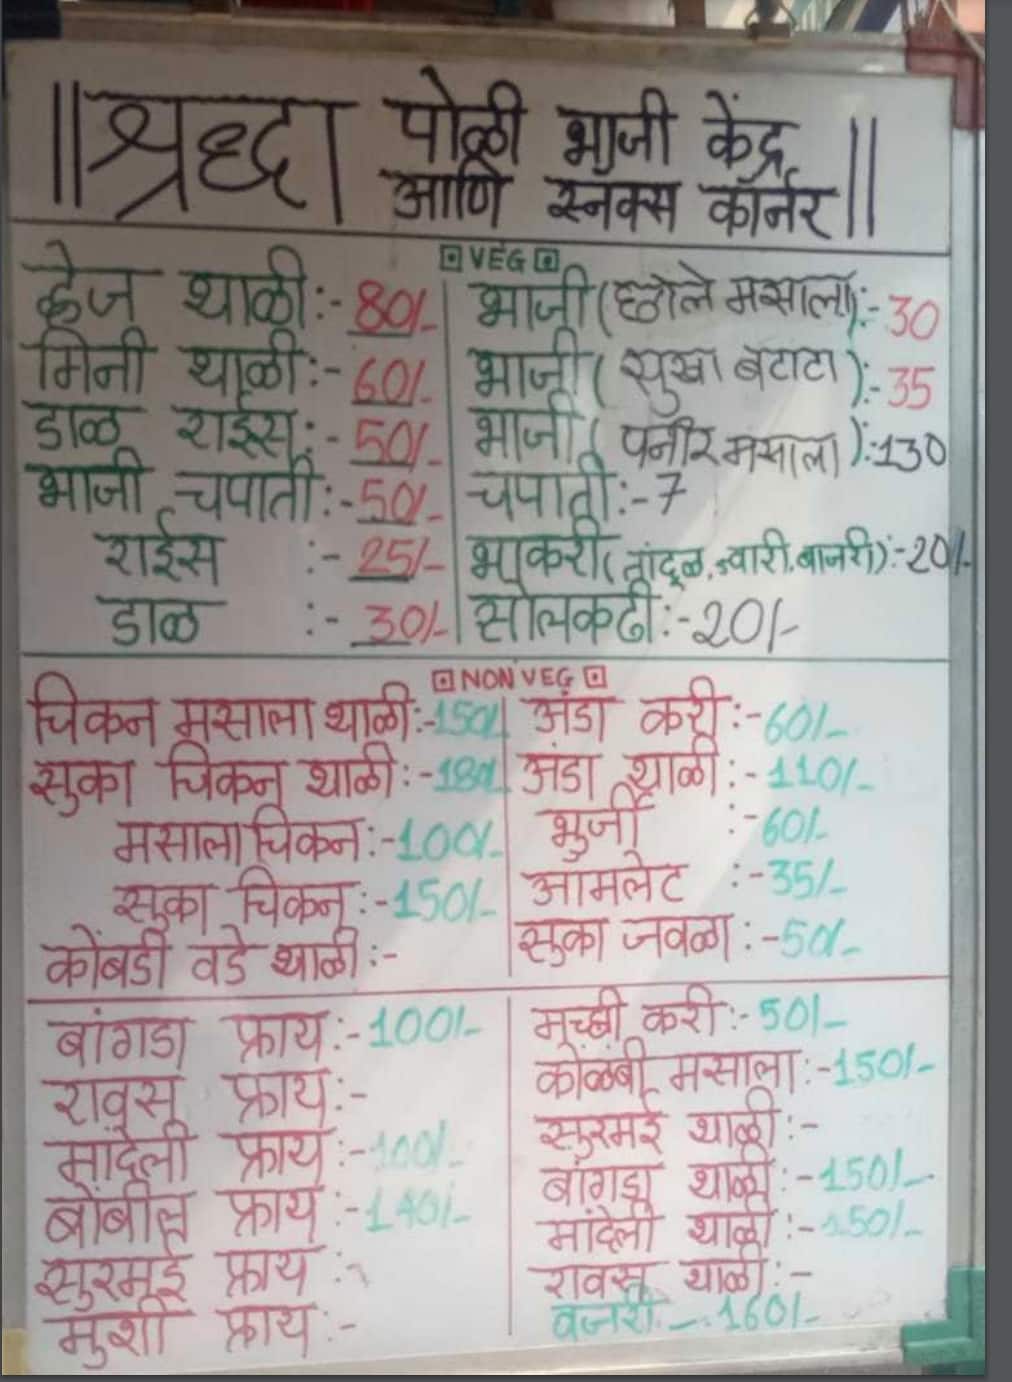 ||श्रध्दा पोळी भाजी केंद्र
आणि स्नक्स कॉर्नर||
VEG
व्हेज थाळी:- 80/-
मिनी थाळी:- 60/-
डाळ राईस:- 50/-
भाजी चपाती:- 50/-
राईस :- 25/-
डाळ :- 30/-
भाजी (छोले मसाला):- 30
भाजी (सुखा बटाटा):- 35
भाजी (पनीर मसाला):-130
चपाती:-7
भाकरी(तांदूळ,ज्वारी,बाजरी):-20/-
सोलकढी:-20/-
NON VEG
चिकन मसाला थाळी:-150/-
सुका चिकन थाळी:-180/-
मसाला चिकन:-100/-
सुका चिकन:-150/-
कोंबडी वडे थाळी:-
अंडा करी:-60/-
अंडा थाळी:-110/-
भुर्जी :-60/-
आमलेट :-35/-
सुका जवळा:-50/-
बांगडा फ्राय:-100/-
रावस फ्राय:-
मांदेली फ्राय:-100/-
बोंबील फ्राय:-140/-
सुरमई फ्राय:-
मुशी फ्राय:-
मच्छी करी:-50/-
कोळंबी मसाला:-150/-
सुरमई थाळी:-
बांगडा थाळी:-150/-
मांदेली थाळी:-150/-
रावस थाळी:-
वजरी - 160/-